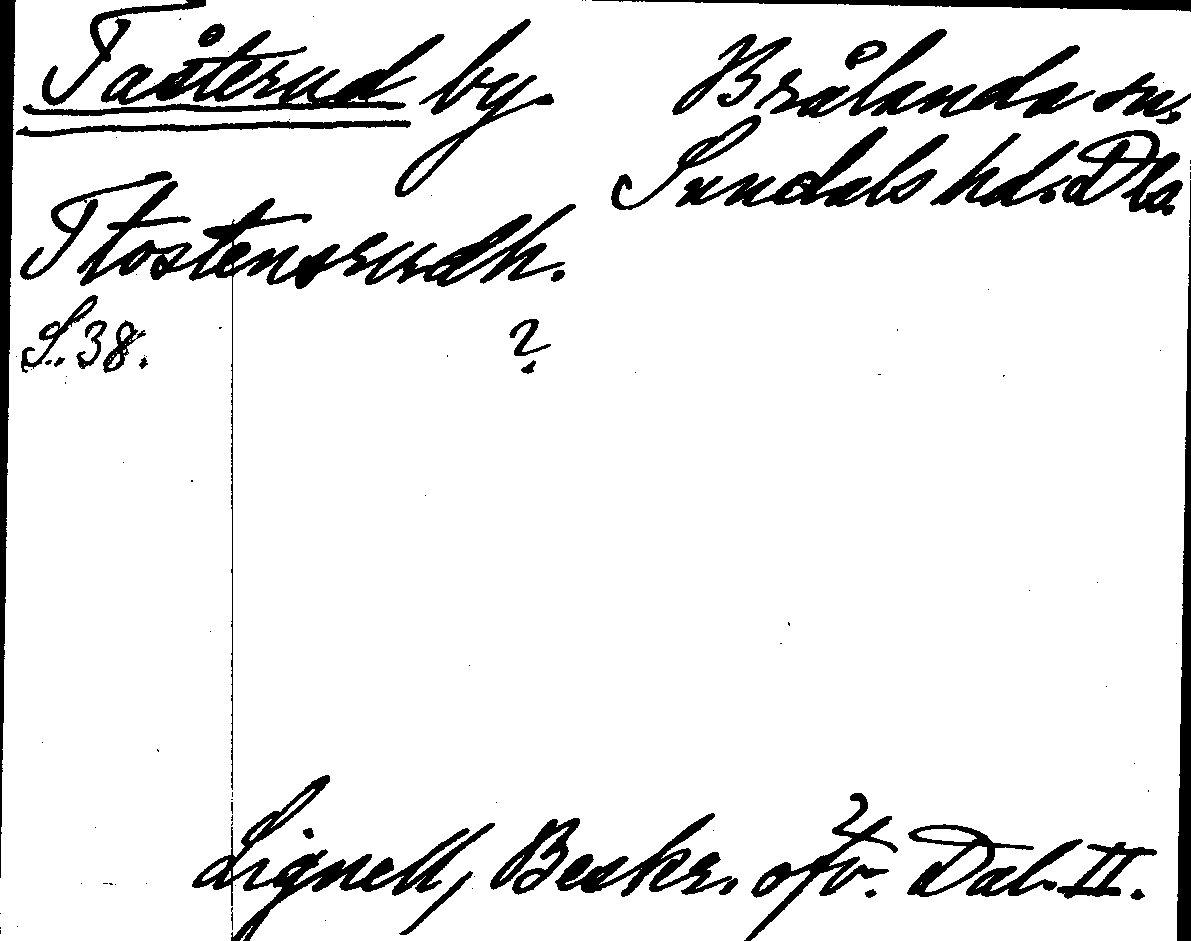 Tåsterud by.
Brålanda sn,
Sundals hd. Dla.
Ttostensrudh.
S. 38.
?
Lignell, Beskr. öfv. Dal. II.